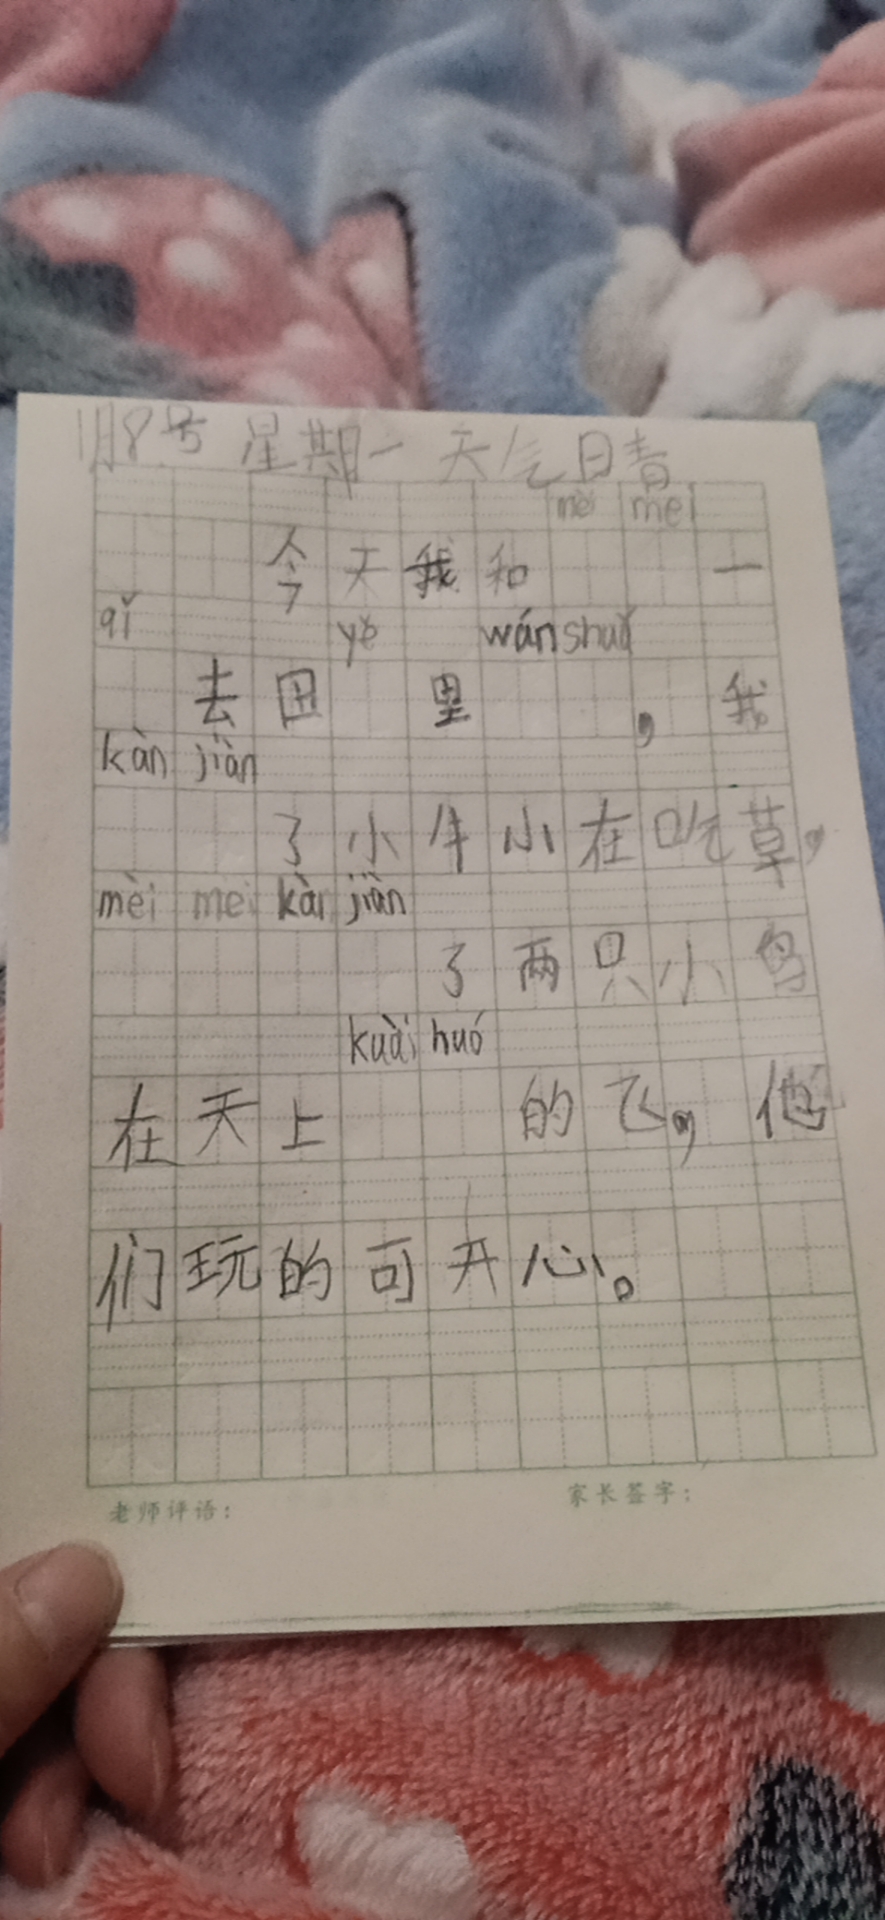 1月8号 星期一 天气日青
mèi mei
今天我和 一
qǐ yě wán shuǎ
去田 里 ，我
kàn jiàn
了小牛小在吃草，
mèi mei kàn jiàn
了两只小鸟
kuài huó
在天上 的飞，他
们玩的可开心。
老师评语： 家长签字：